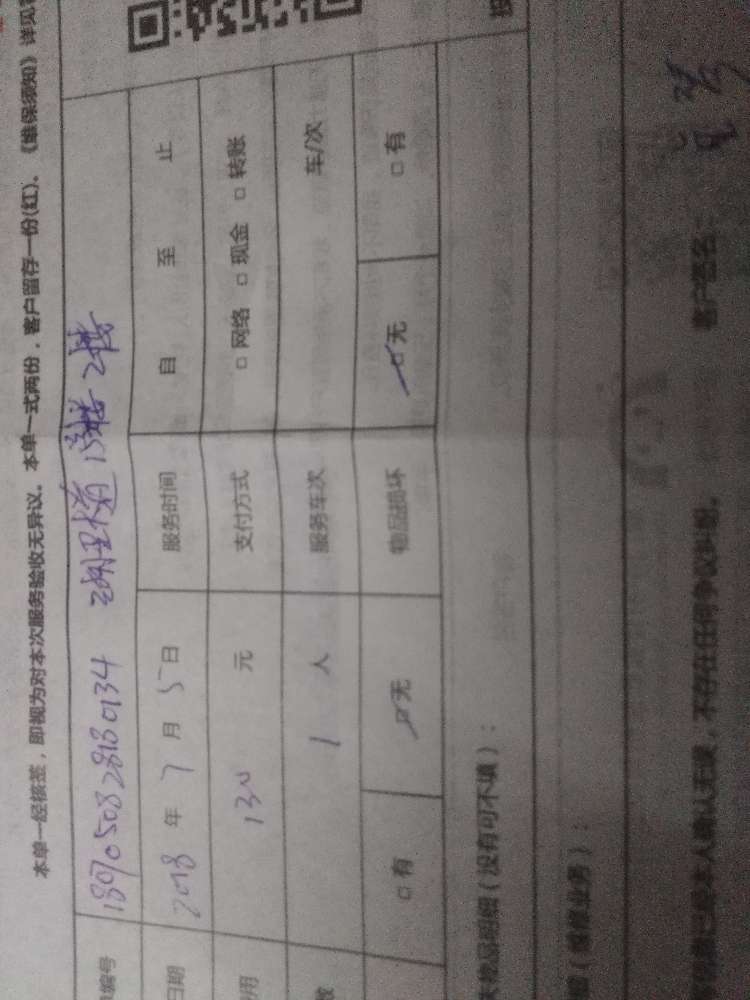 本单一经核签，即视为对本次服务验收无异议。本单一式两份，客户留存一份(红)。《维保须知》详见
编号 1807050828180134
日期 2018 年 7 月 5 日 服务时间 自 至 止
用 130 元 支付方式 □ 网络 □ 现金 □ 转账
数 1 人 服务车次 车/次
□ 有 ☑ 无 物品损坏 ☑ 无 □ 有
物品明细（没有可不填）：
（维修业务）：
已经本人确认无误，不存在任何争议纠纷。 客户签名：